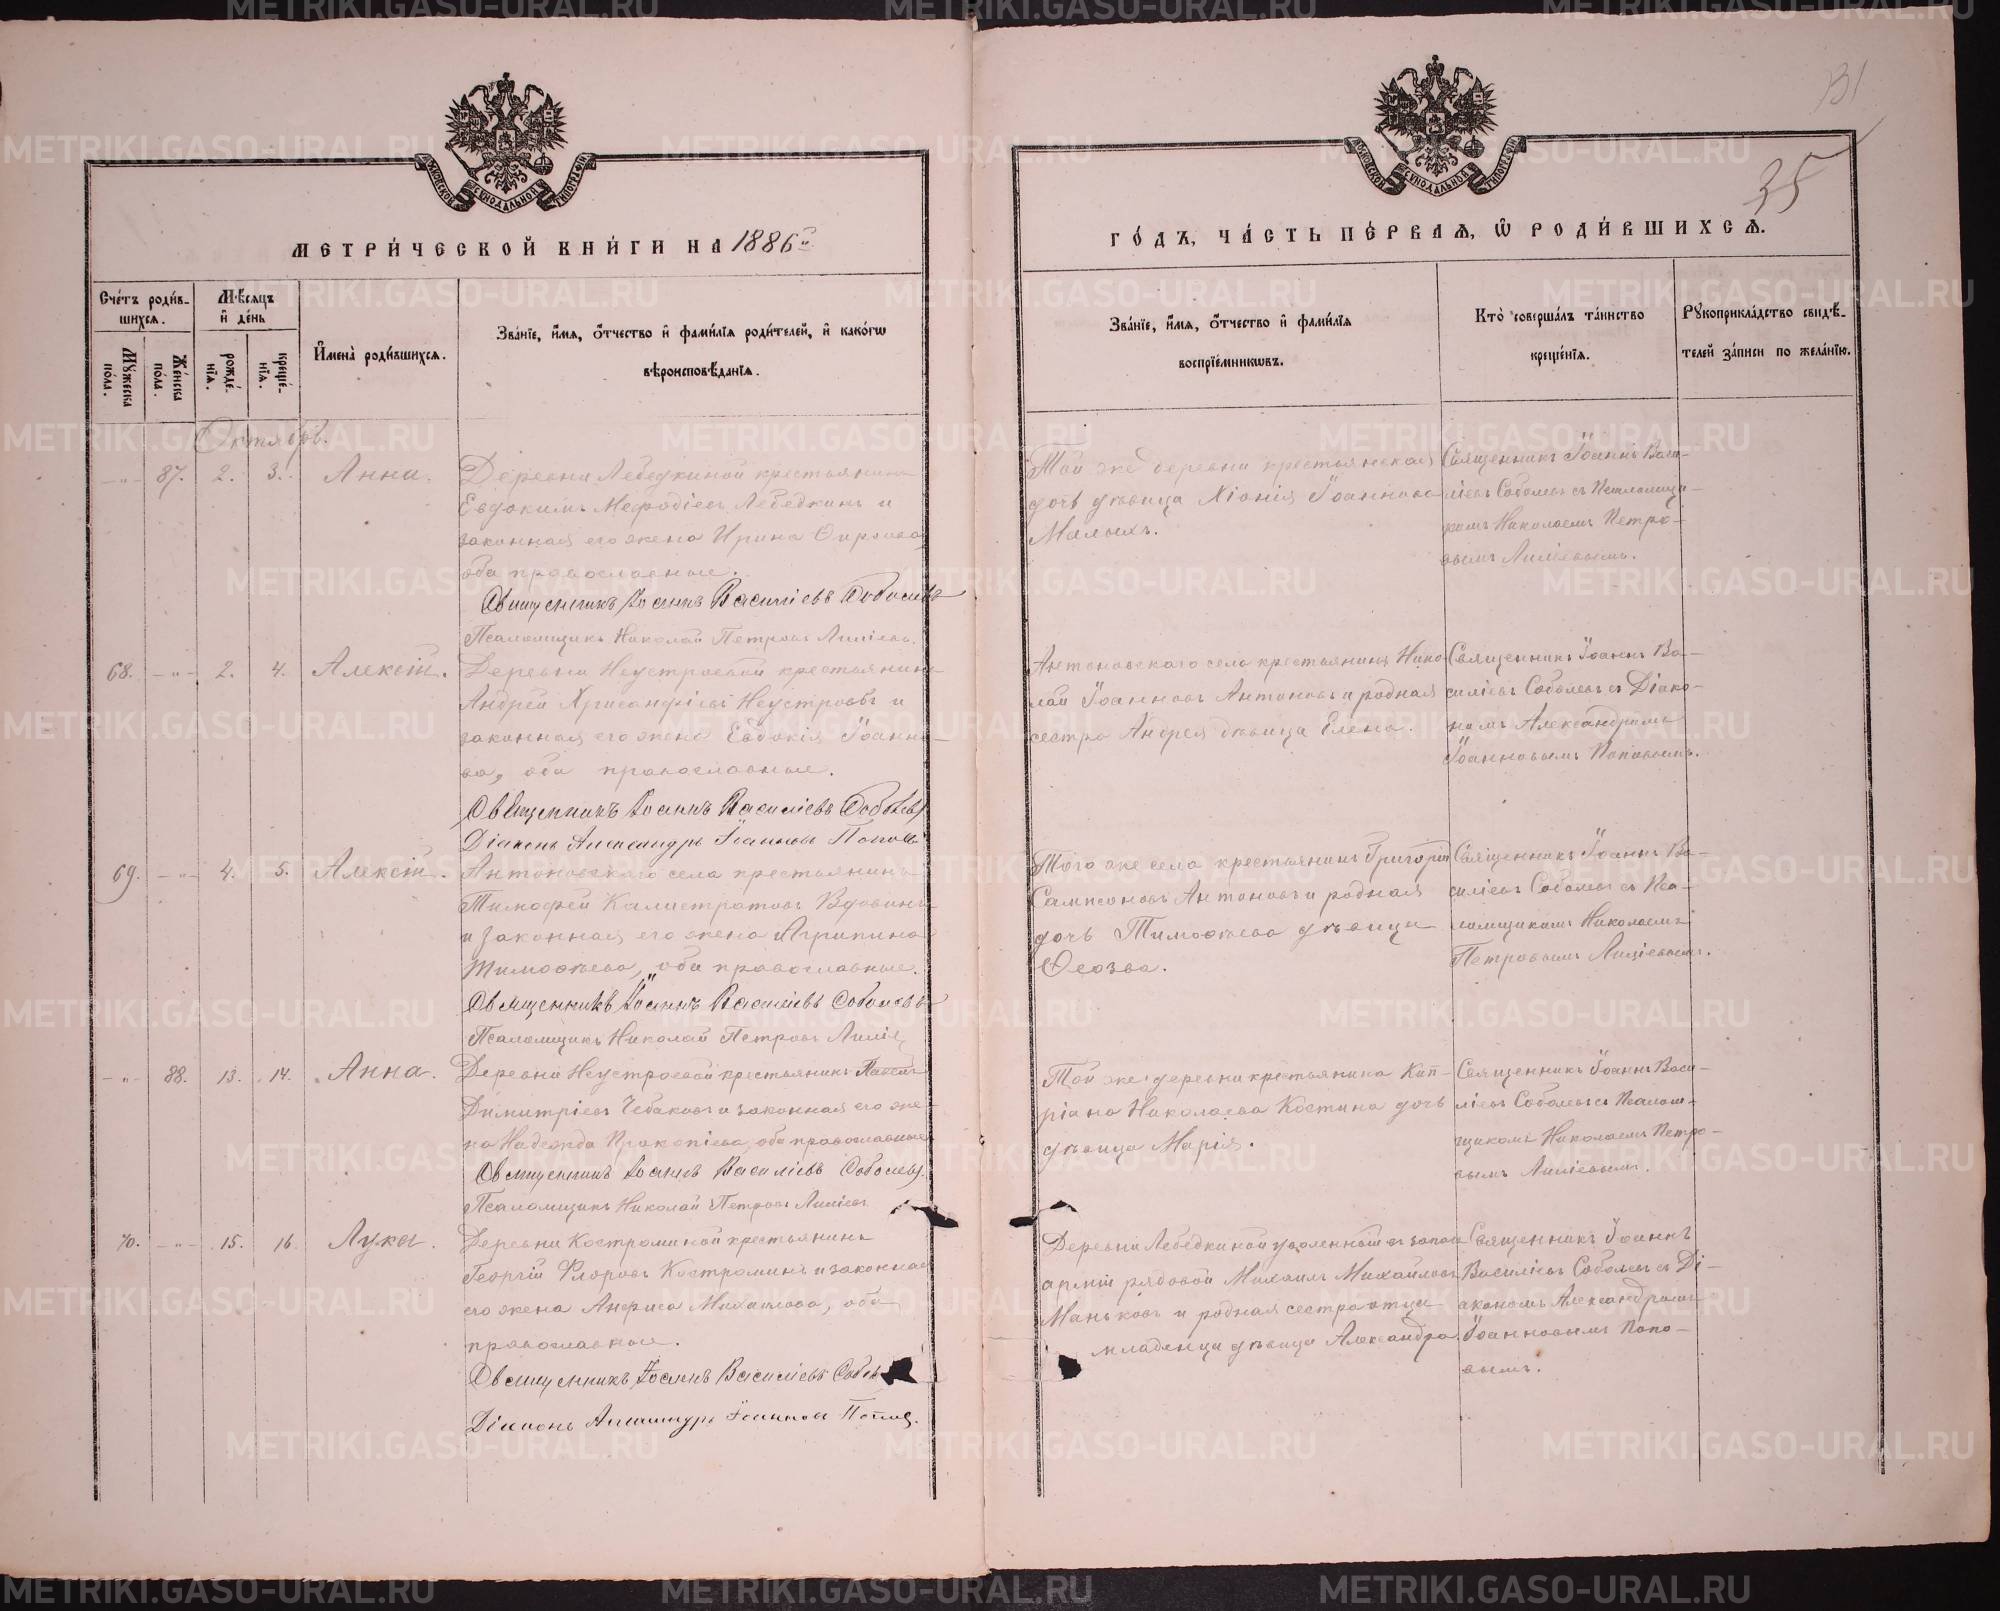 МЕТРИ́ЧЕСКОЙ КНИ́ГИ НА 1886й
Сче́тъ роди́в-
шихсѧ.
Мѣ́сѧцъ
и҆ де́нь
Мꙋ́жеска
по́ла.
Же́нска
по́ла.
рожде́-
нїѧ.
креще́-
нїѧ.
И҆мена̀ роди́вшихсѧ.
Зва́нїе, и҆́мѧ, ѻ҆́тчество и҆ фами́лїѧ роди́телей, и҆ како́гѡ
вѣроисповѣ́данїѧ.
Октябрь.
—"— 87. 2. 3. Анна.
Деревни Лебедкиной крестьянинъ
Евдокимъ Мефодіевъ Лебедкинъ и
законная его жена Ирина
оба православные.
Священникъ Іоаннъ Василіевъ Соболевъ
Псаломщикъ Николай Петровъ
68. —"— 2. 4. Алексій.
Деревни Неустроевой крестьянинъ
Андрей Хрисанфіевъ Неустроевъ и
законная его жена Евдокія Іоанно-
ва, оба православные.
Священникъ Іоаннъ Василіевъ Соболевъ
Діаконъ Александръ Іоанновъ Поповъ
69. —"— 4. 5. Алексій.
Антоновскаго села крестьянинъ
Тимофей Калистратовъ Вдовинъ
и законная его жена Агрипина
Тимоѳеева, оба православные.
Священникъ Іоаннъ Василіевъ Соболевъ
Псаломщикъ Николай Петровъ
—"— 88. 13. 14. Анна.
Деревни Неустроевой крестьянинъ
Димитріевъ Чебаковъ и законная его же-
на Надежда Прокопіева, оба православные
Священникъ Іоаннъ Василіевъ Соболевъ
Псаломщикъ Николай Петровъ
70. —"— 15. 16. Лука.
Деревни Костроминой крестьянинъ
Георгій Флоровъ Костроминъ и законная
его жена Анфиса Михаилова, оба
православные.
Священникъ Іоаннъ Василіевъ
Діаконъ Александръ Іоанновъ Поповъ
35
ГО́ДЪ, ЧА́СТЬ ПЕ́РВАѦ, Ѡ҆ РОДИ́ВШИХСѦ.
Зва́нїе, и҆́мѧ, ѻ҆́тчество и҆ фами́лїѧ
воспрїе́мникѡвъ.
Кто̀ соверша́лъ та́инство
креще́нїѧ.
Рꙋкоприкла́дство свидѣ́-
телей за́писи по жела́нїю.
Той же деревни крестьянская
дочь дѣвица Хіонія Іоаннова
Малыхъ.
Священникъ Іоаннъ Васи-
ліевъ Соболевъ съ Псаломщи-
комъ Николаемъ Петро-
вымъ
Антоновскаго села крестьянинъ Нико-
лай Іоанновъ Антоновъ и родная
сестра Андрея дѣвица Елена.
Священникъ Іоаннъ Ва-
силіевъ Соболевъ съ Діако-
номъ Александромъ
Іоанновымъ Поповымъ.
Того же села крестьянинъ Григорій
Сампсоновъ Антоновъ и родная
дочь Тимоѳеева дѣвица
Ѳеозва.
Священникъ Іоаннъ Ва-
силіевъ Соболевъ съ Пса-
ломщикомъ Николаемъ
Петровымъ
Той же деревни крестьянина Кип-
ріана Николаева Костина дочь
дѣвица Марія.
Священникъ Іоаннъ Васи-
ліевъ Соболевъ съ Псалом-
щикомъ Николаемъ Петро-
вымъ
Деревни Лебедкиной уволенный въ запасъ
арміи рядовой Михаилъ Михайловъ
Маньковъ и родная сестра отца
младенца дѣвица Александра.
Священникъ Іоаннъ
Василіевъ Соболевъ съ Ді-
акономъ Александромъ
Іоанновымъ Попо-
вымъ.
METRIKI.GASO-URAL.RU